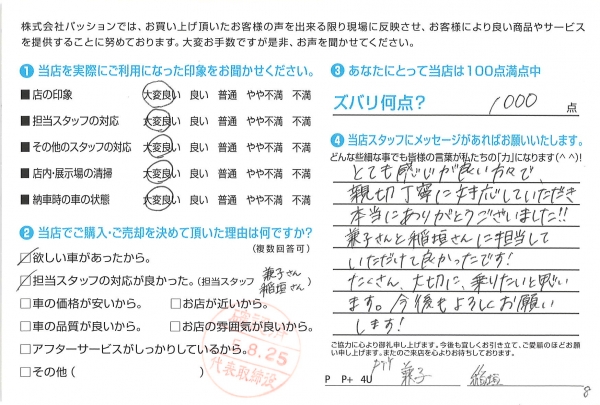 株式会社パッションでは、お買い上げ頂いたお客様の声を出来る限り現場に反映させ、お客様により良い商品やサービス
を提供することに努めております。大変お手数ですが是非、お声を聞かせてください。
❶ 当店を実際にご利用になった印象をお聞かせください。
■ 店の印象 大変良い 良い 普通 やや不満 不満
■ 担当スタッフの対応 大変良い 良い 普通 やや不満 不満
■ その他のスタッフの対応 大変良い 良い 普通 やや不満 不満
■ 店内・展示場の清掃 大変良い 良い 普通 やや不満 不満
■ 納車時の車の状態 大変良い 良い 普通 やや不満 不満
❷ 当店でご購入・ご売却を決めて頂いた理由は何ですか?
(複数回答可)
☑欲しい車があったから。
☑担当スタッフの対応が良かった。(担当スタッフ 兼子さん 稲垣さん)
□車の価格が安いから。 □お店が近いから。
□車の品質が良いから。 □お店の雰囲気が良いから。
□アフターサービスがしっかりしているから。
□その他( )
8.25
代表取締役
❸ あなたにとって当店は100点満点中
ズバリ何点? 1000 点
❹ 当店スタッフにメッセージがあればお願いいたします。
どんな些細な事でも皆様の言葉が私たちの「力」になります(^^)!
とても感じが良い方々で、
親切丁寧に対応していただき
本当にありがとうございました!!
兼子さんと稲垣さんに担当して
いただけて良かったです!
たくさん、大切に、乗りたいと思い
ます。今後もよろしくお願い
します!
ご協力に心より御礼申し上げます。今後も宜しくお引き立て、ご愛顧のほどお願
い申し上げます。またのご来店を心よりお待ちしております。
P P+ 4U 兼子 稲垣
8